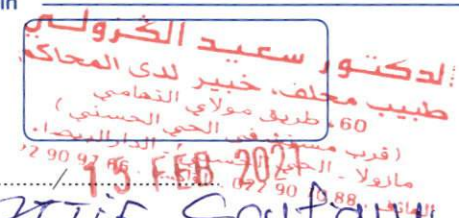 in
الدكتور سعيد الكزولي
طبيب محلف، خبير لدى المحاكم
60، طريق مولاي التهامي
(قرب مستشفى الحي الحسني)
مازولا - الحي الحسني - الدار البيضاء
13 FEB 2021
022 90 88